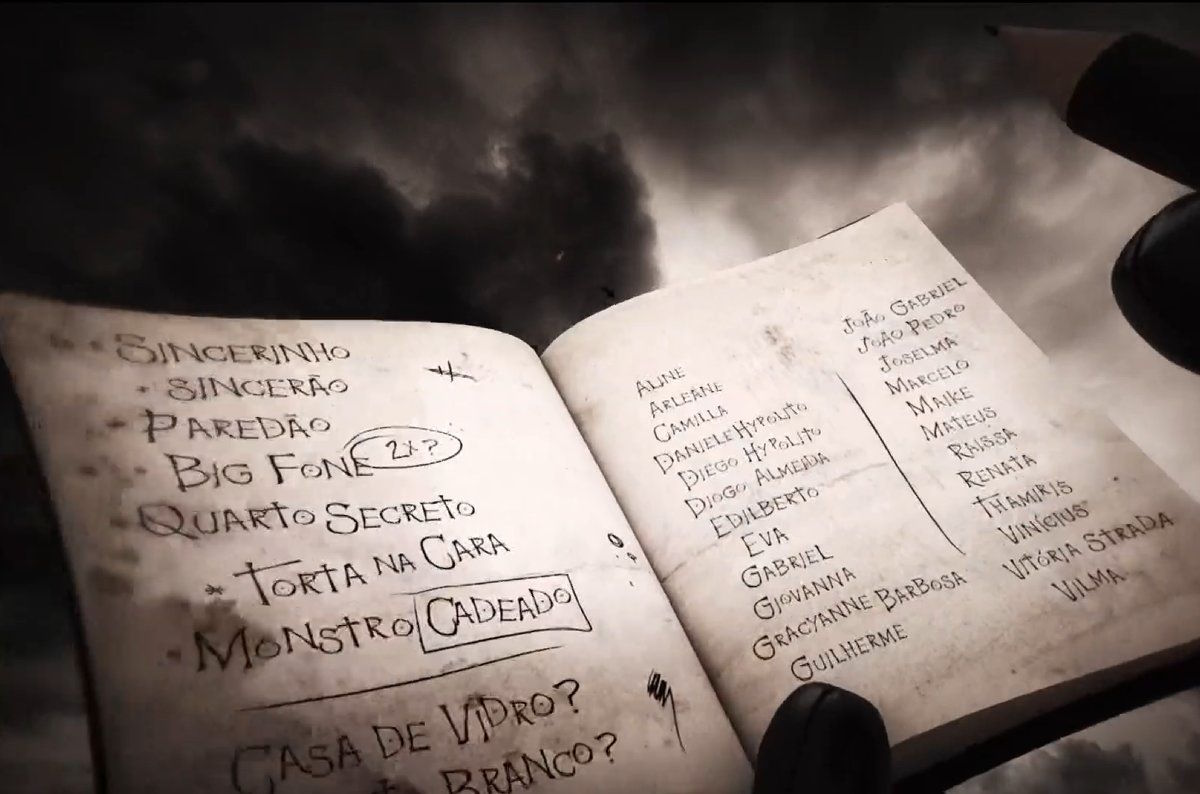 SINCERINHO
SINCERÃO
PAREDÃO
BIG FONE 2x?
QUARTO SECRETO
* TORTA NA CARA
MONSTRO CADEADO
CASA DE VIDRO?
BRANCO?
ALINE
ARLEANE
CAMILLA
DANIELE HYPOLITO
DIEGO HYPOLITO
DIOGO ALMEIDA
EDILBERTO
EVA
GABRIEL
GIOVANNA
GRACYANNE BARBOSA
GUILHERME
JOÃO GABRIEL
JOÃO PEDRO
JOSELMA
MARCELO
MAIKE
MATEUS
RAISSA
RENATA
THAMIRIS
VINÍCIUS
VITÓRIA STRADA
VILMA